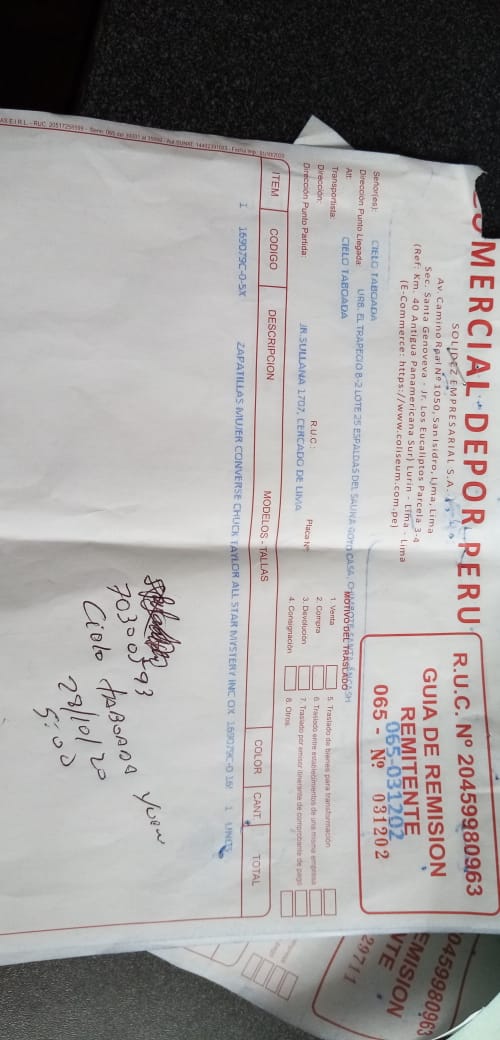 MERCIAL DEPOR PERU
SOLIDEZ EMPRESARIAL S.A.
Av. Camino Real Nº 1050, San Isidro, Lima, Lima
Sec. Santa Genoveva - Jr. Los Eucaliptos Parcela 3-4
(Ref: Km. 40 Antigua Panamericana Sur) Lurin - Lima - Lima
(E-Commerce: https://www.coliseum.com.pe)
R.U.C. Nº 20459980963
GUIA DE REMISION
REMITENTE
065-031202
065 - Nº 031202
Señor(es): CIELO TABOADA
Dirección Punto Llegada: URB. EL TRAPECIO B-2 LOTE 25 ESPALDAS DEL SAUNA GOTO CASA, CHIMBOTE SANTA ANCASH
Att: CIELO TABOADA
Transportista:
Dirección: R.U.C.: Placa Nº
Dirección Punto Partida: JR. SULLANA 1707, CERCADO DE LIMA
MOTIVO DEL TRASLADO
1. Venta
2. Compra
3. Devolución
4. Consignación
5. Traslado de bienes para transformación
6. Traslado entre establecimientos de una misma empresa
7. Traslado por emisor itinerante de comprobante de pago
8. Otros
ITEM CODIGO DESCRIPCION MODELOS - TALLAS COLOR CANT. TOTAL
1 169079C-0-5X ZAPATILLAS MUJER CONVERSE CHUCK TAYLOR ALL STAR MYSTERY INC OX 169079C-0
70300393
Cielo TABOADA
29/10/20
5:00
0459980963
EMISION
NTE
29711